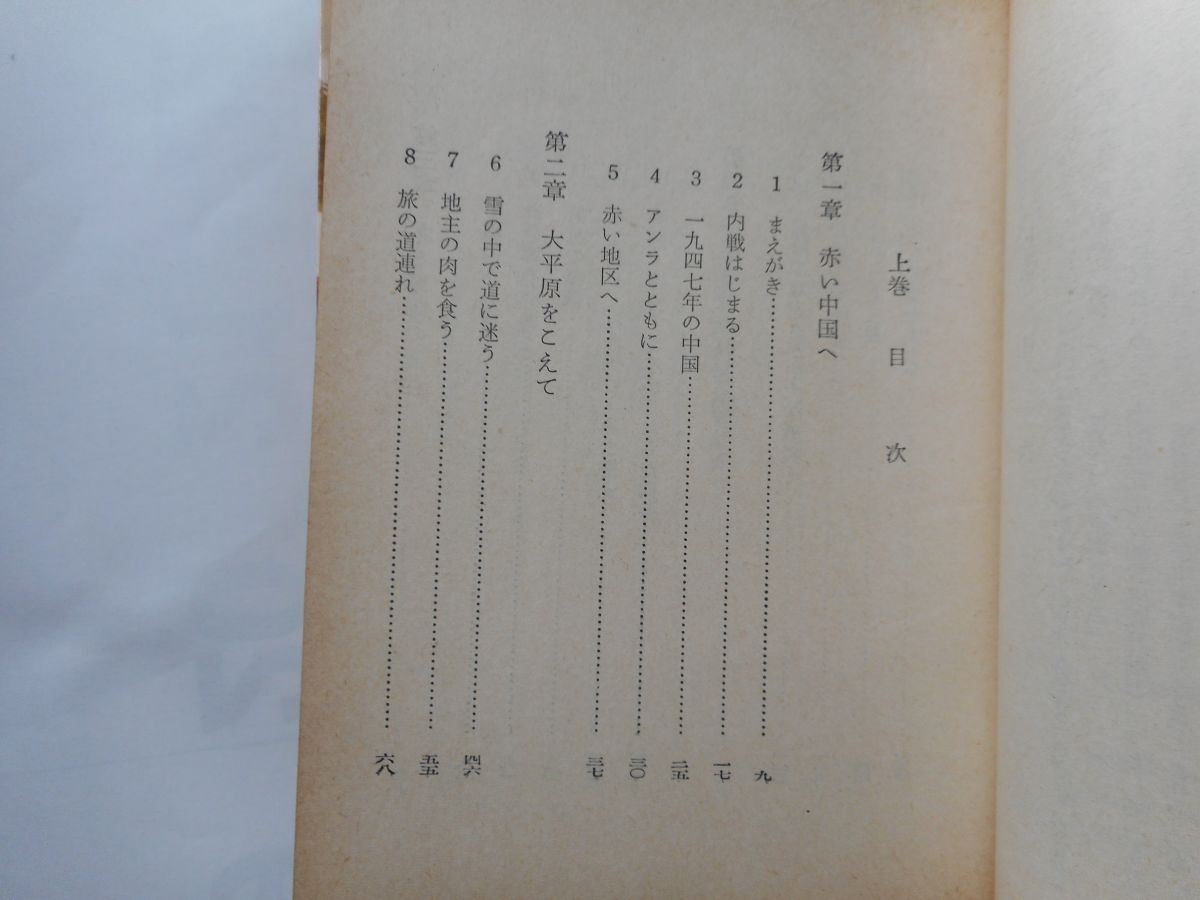 上巻 目次
第一章 赤い中国へ
1 まえがき……九
2 内戦はじまる……一七
3 一九四七年の中国……二五
4 アンラとともに……三〇
5 赤い地区へ……三七
第二章 大平原をこえて
6 雪の中で道に迷う……四六
7 地主の肉を食う……五五
8 旅の道連れ……六八